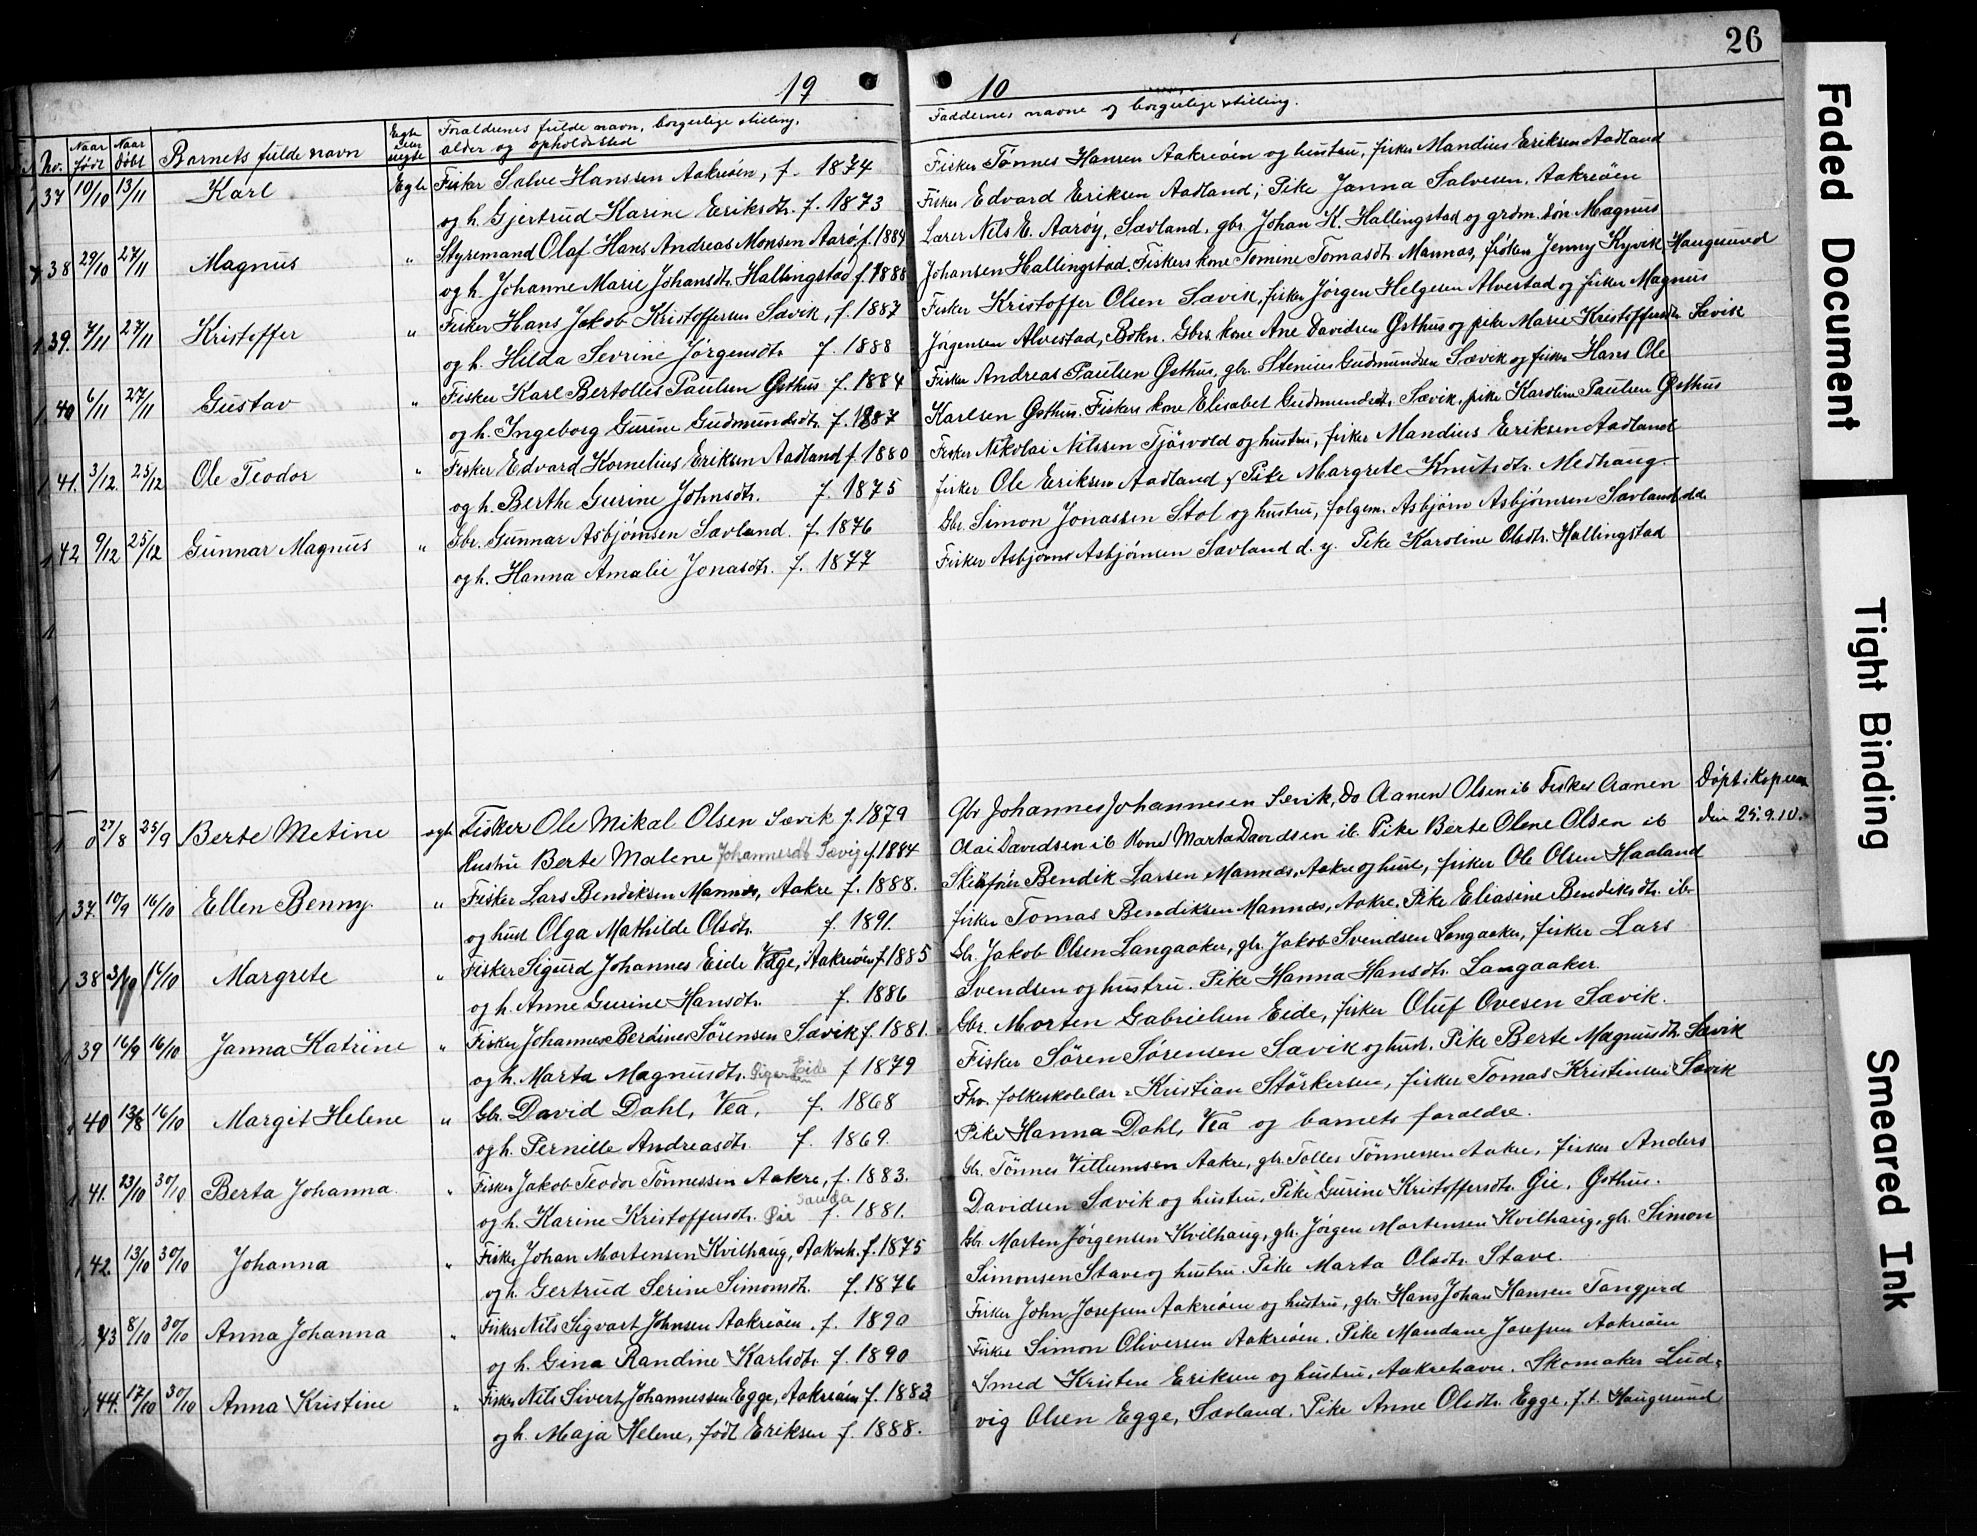 26
19 10
No. Naar født Naar døbt Barnets fulde navn Egte eller uegte Foraldrenes fulde navn, borgerlige stilling, Faddernes navne og borgerlige stilling.
alder og opholdssted
37 10/10 13/11 Karl Egte Fisker Salve Hanssen Aakreøen, f. 1874 Fisker Tønnes Hansen Aakreøen og hustru, fisker Mandius Eriksen Aadland
og h. Gjertrud Karine Eriksdtr. f. 1873 Fisker Edvard Eriksen Aadland; Pike Janna Salvesen, Aakreøen
38 29/10 27/11 Magnus " Styremand Olaf Hans Andreas Monsen Aarø f. 1884 Lærer Nils E. Aarøy, Sævland, gbr. Johan K. Hallingstad og grdm. søn Magnus
og h. Johanne Marie Johansdtr. Hallingstad f. 1888 Johansen Hallingstad. Fiskers kone Tomine Tomasdtr. Mannes, frøken Jenny Kyvik Haugesund
39. 7/11 27/11 Kristoffer " Fisker Hans Jakob Kristoffersen Sævik, f. 1887 Fisker Kristoffer Olsen Sævik, fisker Jørgen Helgesen Alvestad og fisker Magnus
og h. Hilda Sevrine Jørgensdtr. f. 1888 Jørgensen Alvestad, Bokn. Gbrs. kone Ane Davidsen Østhus og pike Marie Kristoffersdtr. Sævik
40 6/11 27/11 Gustav " Fisker Karl Bertolles Paulsen Østhus f. 1884 Fisker Andreas Paulsen Østhus, gbr. Stenius Gudmundsen Sævik og fisker Hans Ole
og h. Ingeborg Gurine Gudmundsdtr. f. 1887 Karlsen Østhus. Fiskers kone Elisabet Gudmundsdtr. Sævik, pike Karoline Paulsen Østhus
41. 3/12. 25/12 Ole Teodor " Fisker Edvard Kornelius Eriksen Aadland f. 1880 Fisker Nikolai Nilssen Tjøsvold og hustru, fisker Mandius Eriksen Aadland
og h. Berthe Gurine Johnsdtr. f. 1875 fisker Ole Eriksen Aadland, Pike Margrete Knutsdtr. Medhaug.
42 9/12 25/12 Gunnar Magnus " Gbr. Gunnar Asbjørnsen Sævland. f. 1876 Gbr. Simon Jonassen Stol og hustru, folgem. Asbjørn Asbjørnsen Sævland d.æ.
og h. Hanna Amalie Jonasdtr. f. 1877 Fisker Asbjørn Asbjørnsen Sævland d. y. Pike Karoline Olsdtr. Hallingstad
27/8 25/9 Berte Metine egt. Fisker Ole Mikal Olsen Sævik f. 1879 Gbr Johannes Johannesen Sevik, Do Aanen Olsen ib Fisker Aanen Døpt i Kopervik
Hustru Berte Malene Johannesdtr Sævig f. 1884 Olai Davidsen ib Kone Marta Davidsen ib. Pike Berte Olene Olsen ib den 25.9.10.
37. 10/9 16/10 Ellen Benny. " Fisker Lars Bendiksen Mannes, Aakre f. 1888. Skibsfører Bendik Larsen Mannes, Aakre og hust., fisker Ole Olsen Haaland
og hust Olga Mathilde Olsdtr. f. 1891. fisker Tomas Bendiksen Mannes, Aakre. Pike Eliasine Bendiksdtr. ib.
38 16/10 Margrete " Fisker Sigurd Johannes Eide Vage, Aakreøen f. 1885 Gbr. Jakob Olsen Langaaker, gbr. Jakob Svendsen Langaaker, fisker Lars
og h. Anne Gurine Hansdtr. f. 1886 Svendsen og hustru. Pike Hanna Hansdtr. Langaaker.
39 16/9 16/10 Janna Katrine " Fisker Johannes Berdines Sørensen Sævik f. 1881. Gbr. Morten Gabrielsen Eide, fisker Oluf Ovesen Sævik.
og h. Marta Magnusdtr. Eide f 1879 Fisker Søren Sørensen Sævik og hust. Pike Berte Magnusdtr. Sævik
40 13/8 16/10 Margit Helene " Gbr. David Dahl, Vea, f. 1868 Fhv. folkeskolelær. Kristian Størkersen, fisker Tomas Kristensen Sævik
og h. Pernille Andreasdtr. f. 1869. Pike Hanna Dahl, Vea og barnets foraldre.
41. 23/10 30/10 Berta Johanna. " Fisker Jakob Teodor Tønnessen Aakre, f. 1883. Gbr. Tønnes Villumsen Aakre, gbr. Tolles Tønnessen Aakre, fisker Anders
og h. Karine Kristoffersdtr. Sanda f. 1881. Davidsen Sævik og hustru, Pike Gurine Kristoffersdtr. Øie, Østhus.
42. 13/10 30/10 Johanna " Fisker Johan Mortensen Kvilhaug, Aakreh. f. 1875 Gbr. Morten Jørgensen Kvilhaug, gbr. Jørgen Mortensen Kvilhaug, gbr. Simon
og h. Gertrud Serine Simonsdtr. f. 1876 Simonsen Stave og hustru. Pike Marta Olsdtr. Stave.
43 8/10 30/10 Anna Johanna " Fisker Nils Sigvart Johnsen Aakreøen. f. 1890 Fisker John Josefsen Aakreøen og hustru, gbr. Hans Johan Hansen Tangjerd
og h. Gina Randine Karlsdtr. f. 1890 Fisker Simon Oliversen Aakreøen. Pike Mandane Josefsen Aakreøen
44. 17/10 30/10 Anna Kristine " Fisker Nils Sivert Johannessen Egge, Aakreøen f. 1883 Smed Kristen Eriksen og hustru, Aakrehavn. Skomaker Lud-
og h. Maja Helene, født Eriksen f. 1888. vig Olsen Egge, Sævland. Pike Anne Olsdtr. Egge, f.t. Haugesund
Faded Document
Tight Binding
Smeared Ink